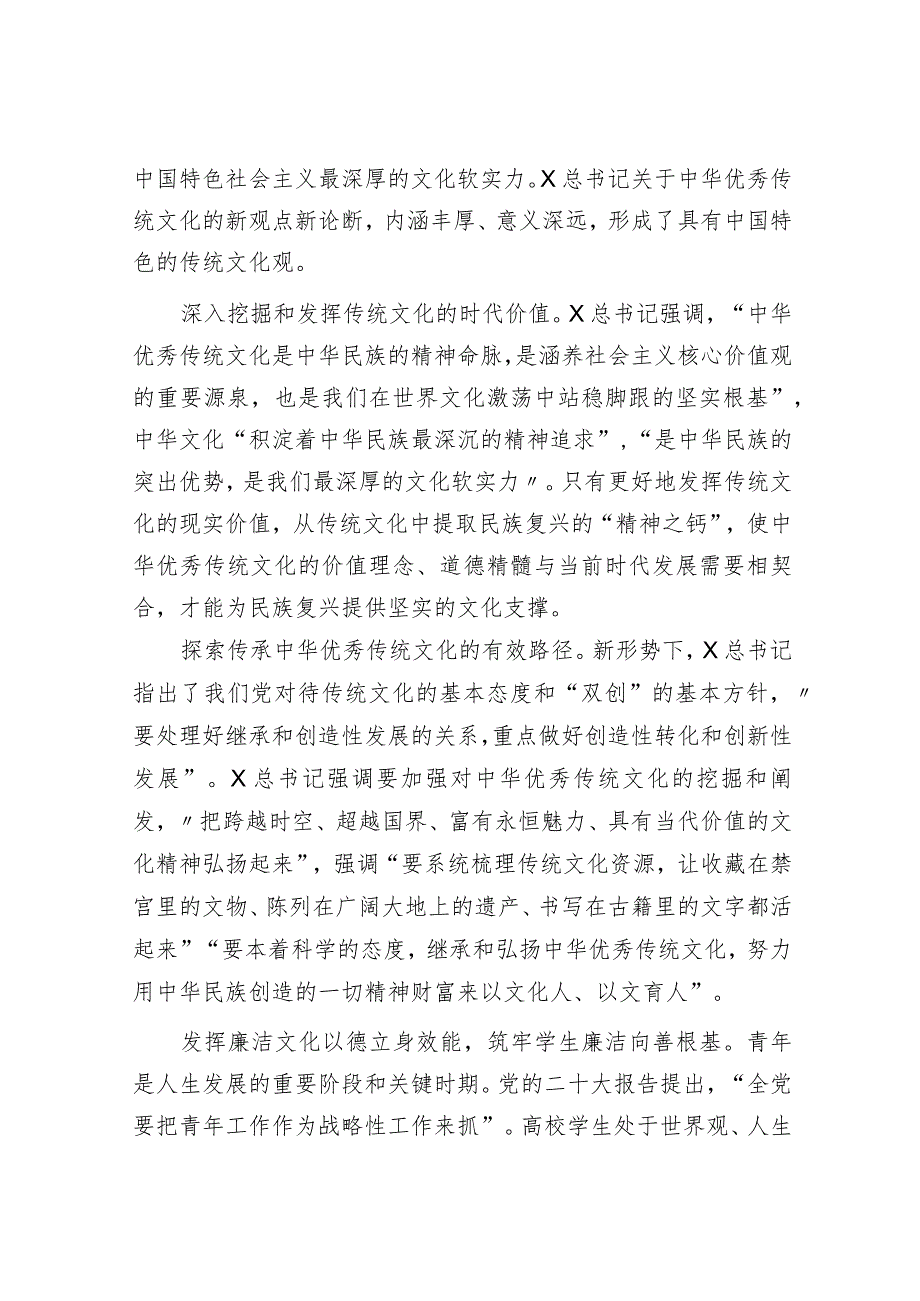 中国特色社会主义最深厚的文化软实力。X 总书记关于中华优秀传
统文化的新观点新论断，内涵丰厚、意义深远，形成了具有中国特
色的传统文化观。
深入挖掘和发挥传统文化的时代价值。X 总书记强调，“中华
优秀传统文化是中华民族的精神命脉，是涵养社会主义核心价值观
的重要源泉，也是我们在世界文化激荡中站稳脚跟的坚实根基”，
中华文化“积淀着中华民族最深沉的精神追求”，“是中华民族的
突出优势，是我们最深厚的文化软实力〃。只有更好地发挥传统文
化的现实价值，从传统文化中提取民族复兴的“精神之钙”，使中
华优秀传统文化的价值理念、道德精髓与当前时代发展需要相契
合，才能为民族复兴提供坚实的文化支撑。
探索传承中华优秀传统文化的有效路径。新形势下，X 总书记
指出了我们党对待传统文化的基本态度和“双创”的基本方针，〃
要处理好继承和创造性发展的关系，重点做好创造性转化和创新性
发展”。X 总书记强调要加强对中华优秀传统文化的挖掘和阐
发，〃把跨越时空、超越国界、富有永恒魅力、具有当代价值的文
化精神弘扬起来”，强调“要系统梳理传统文化资源，让收藏在禁
宫里的文物、陈列在广阔大地上的遗产、书写在古籍里的文字都活
起来”“要本着科学的态度，继承和弘扬中华优秀传统文化，努力
用中华民族创造的一切精神财富来以文化人、以文育人”。
发挥廉洁文化以德立身效能，筑牢学生廉洁向善根基。青年
是人生发展的重要阶段和关键时期。党的二十大报告提出，“全党
要把青年工作作为战略性工作来抓”。高校学生处于世界观、人生